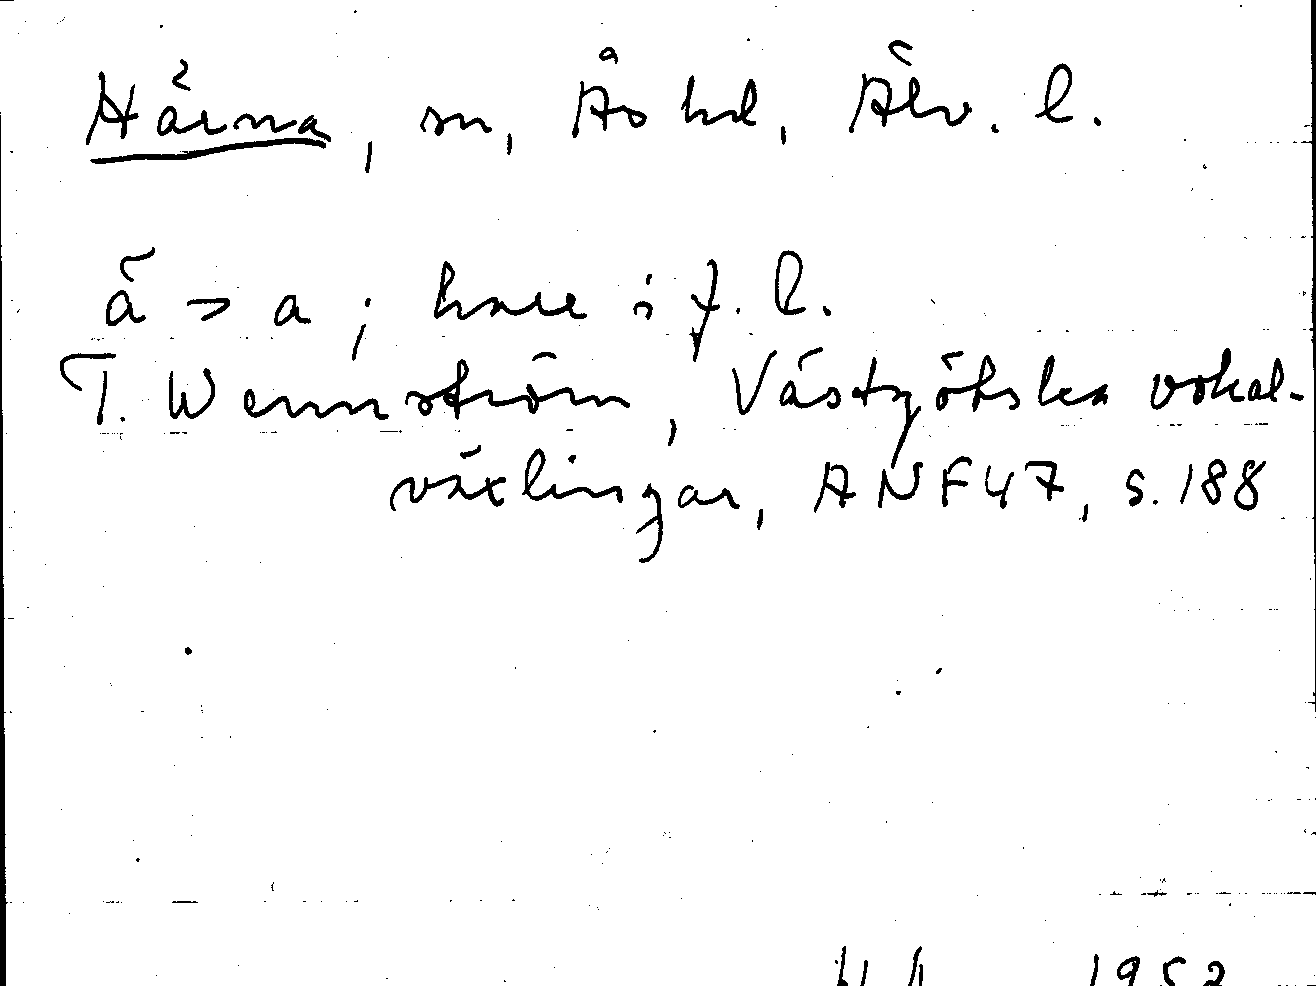 Härna, sn, Ås hd, Älv. l.
ä > a ; hare i f. l.
T. Wennström, Västgötska vokal-
växlingar, ANF 47, s. 188
1952